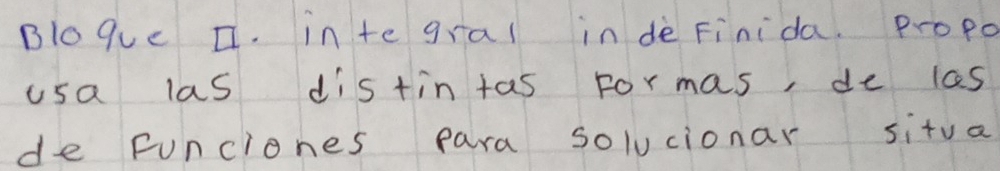 Bloque II. integral indefinida. Propo
usa las distintas Formas, de las
de Funciones para solucionar situa